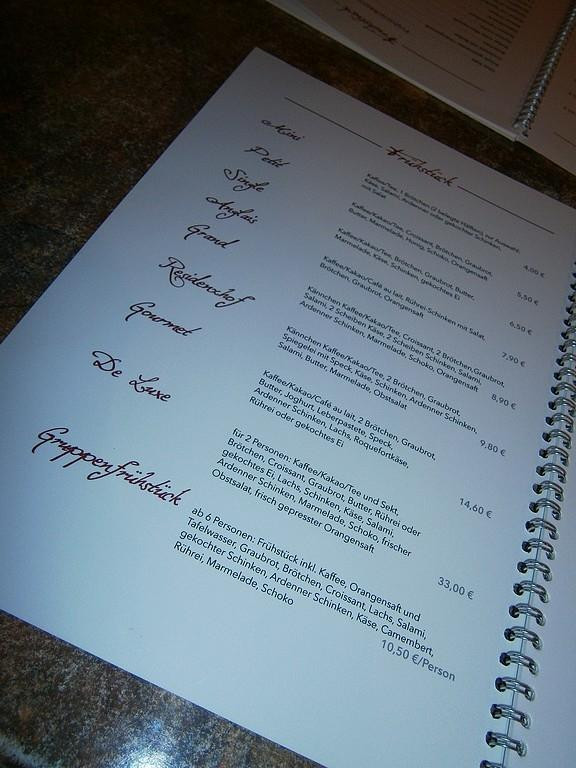 Frühstück
Mini
Kaffee/Tee, 1 Brötchen (2 belegte Hälften), zur Auswahl:
Käse, Salami, Ardenner oder gekochter Schinken,
mit Salat
4,00 €
Petit
Kaffee/Kakao/Tee, Croissant, Brötchen, Graubrot,
Butter, Marmelade, Honig, Schoko, Orangensaft
5,50 €
Single
Kaffee/Kakao/Tee, Brötchen, Graubrot, Butter,
Marmelade, Käse, Schinken, gekochtes Ei
6,50 €
Anglais
Kaffee/Kakao/Café au lait, Rührei Schinken mit Salat,
Brötchen, Graubrot, Orangensaft
7,90 €
Grand
Kännchen Kaffee/Kakao/Tee, Croissant, 2 Brötchen, Graubrot,
Salami, 2 Scheiben Käse, 2 Scheiben Schinken, Salami,
Ardenner Schinken, Marmelade, Schoko, Orangensaft
8,90 €
Residenzhof
Kännchen Kaffee/Kakao/Tee, 2 Brötchen, Graubrot,
Spiegelei mit Speck, Käse, Schinken, Ardenner Schinken,
Salami, Butter, Marmelade, Obstsalat
9,80 €
Gourmet
Kaffee/Kakao/Café au lait, 2 Brötchen, Graubrot,
Butter, Joghurt, Leberpastete, Speck,
Ardenner Schinken, Lachs, Roquefortkäse,
Rührei oder gekochtes Ei
14,60 €
De Luxe
für 2 Personen: Kaffee/Kakao/Tee und Sekt,
Brötchen, Croissant, Graubrot, Butter, Rührei oder
gekochtes Ei, Lachs, Schinken, Käse, Salami,
Ardenner Schinken, Marmelade, Schoko, frischer
Obstsalat, frisch gepresster Orangensaft
33,00 €
Gruppenfrühstück
ab 6 Personen: Frühstück inkl. Kaffee, Orangensaft und
Tafelwasser, Graubrot, Brötchen, Croissant, Lachs, Salami,
gekochter Schinken, Ardenner Schinken, Käse, Camembert,
Rührei, Marmelade, Schoko
10,50 €/Person